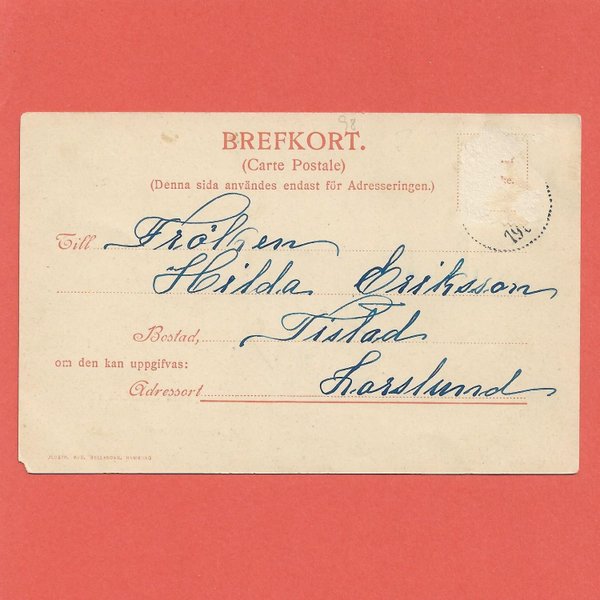 98
BREFKORT.
(Carte Postale)
(Denna sida användes endast för Adresseringen.)
Till Fröken
Hilda Eriksson
Bostad, Tistad
om den kan uppgifvas:
Adressort Larslund